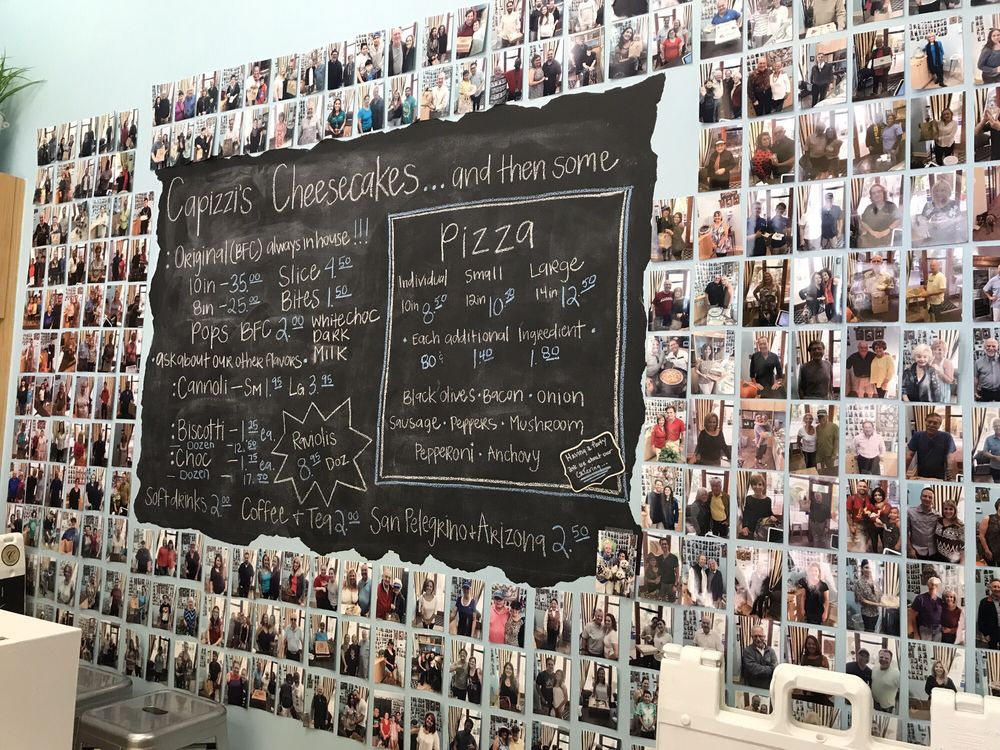 Capizzi's Cheesecakes... and then some
: Original (BFC) always in house !!!
10in - 35.00 Slice 4.50
8in - 25.00 Bites 1.50
Pops BFC 2.00 White choc
Dark
Milk
• ask about our other flavors •
: Cannoli - Sm 1.95 Lg 3.95
: Biscotti - 1.25 ea.
- Dozen - 12.50
: Choc - 1.75 ea.
- Dozen - 17.50
Raviolis
8.95 Doz
Soft drinks 2.00 Coffee + Tea 2.00 San Pelegrino + Arizona 2.50
Pizza
Individual Small Large
10in 8.50 12in 10.50 14in 12.50
• Each additional Ingredient •
80¢ 1.40 1.80
Black olives • Bacon • Onion
Sausage • Peppers • Mushroom
Pepperoni • Anchovy
Having a Party
Ask us about our
Catering